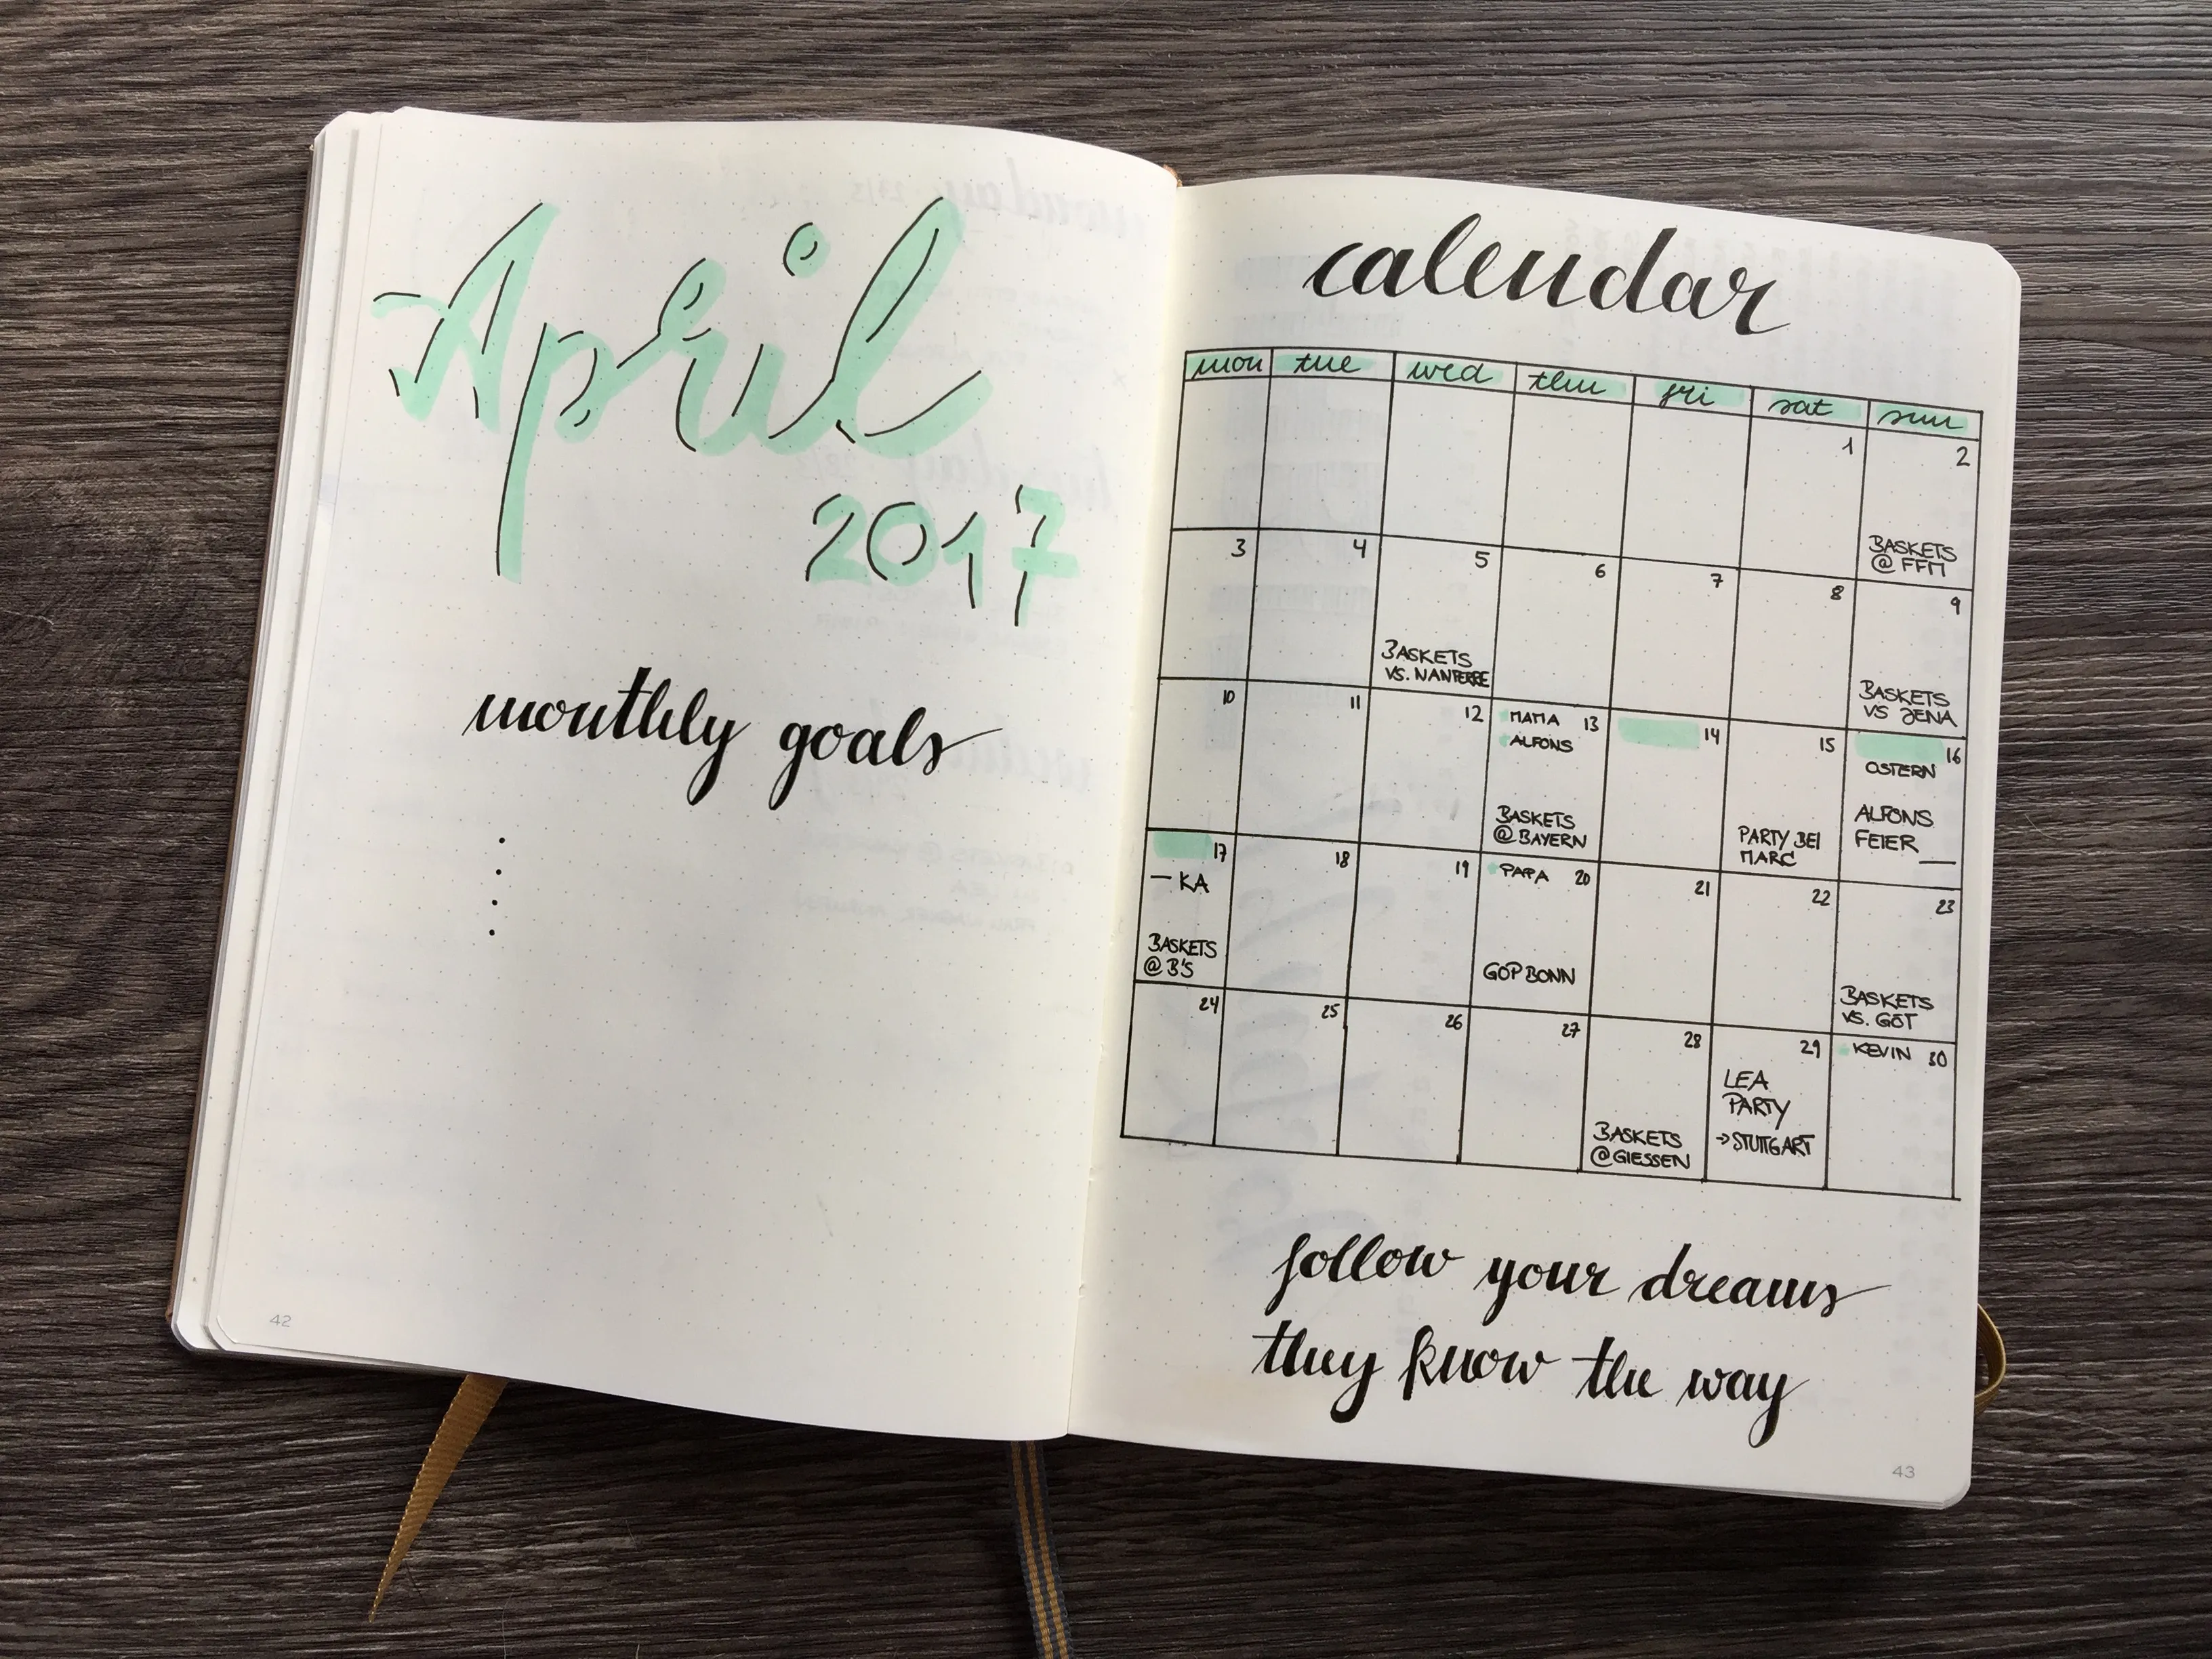 April
2017
monthly goals
42
calendar
mon tue wed thu fri sat sun
1 2
BASKETS
@ FFM
3 4 5 6 7 8 9
BASKETS
VS. NANTERRE
BASKETS
VS JENA
10 11 12 13 14 15 16
MAMA
ALFONS
BASKETS
@BAYERN
PARTY BEI
MARC
OSTERN
ALFONS
FEIER
17 18 19 20 21 22 23
— KA
BASKETS
@ B'S
PAPA
GOP BONN
BASKETS
VS. GÖT
24 25 26 27 28 29 30
BASKETS
@GIESSEN
LEA
PARTY
→STUTTGART
KEVIN
follow your dreams
they know the way
43